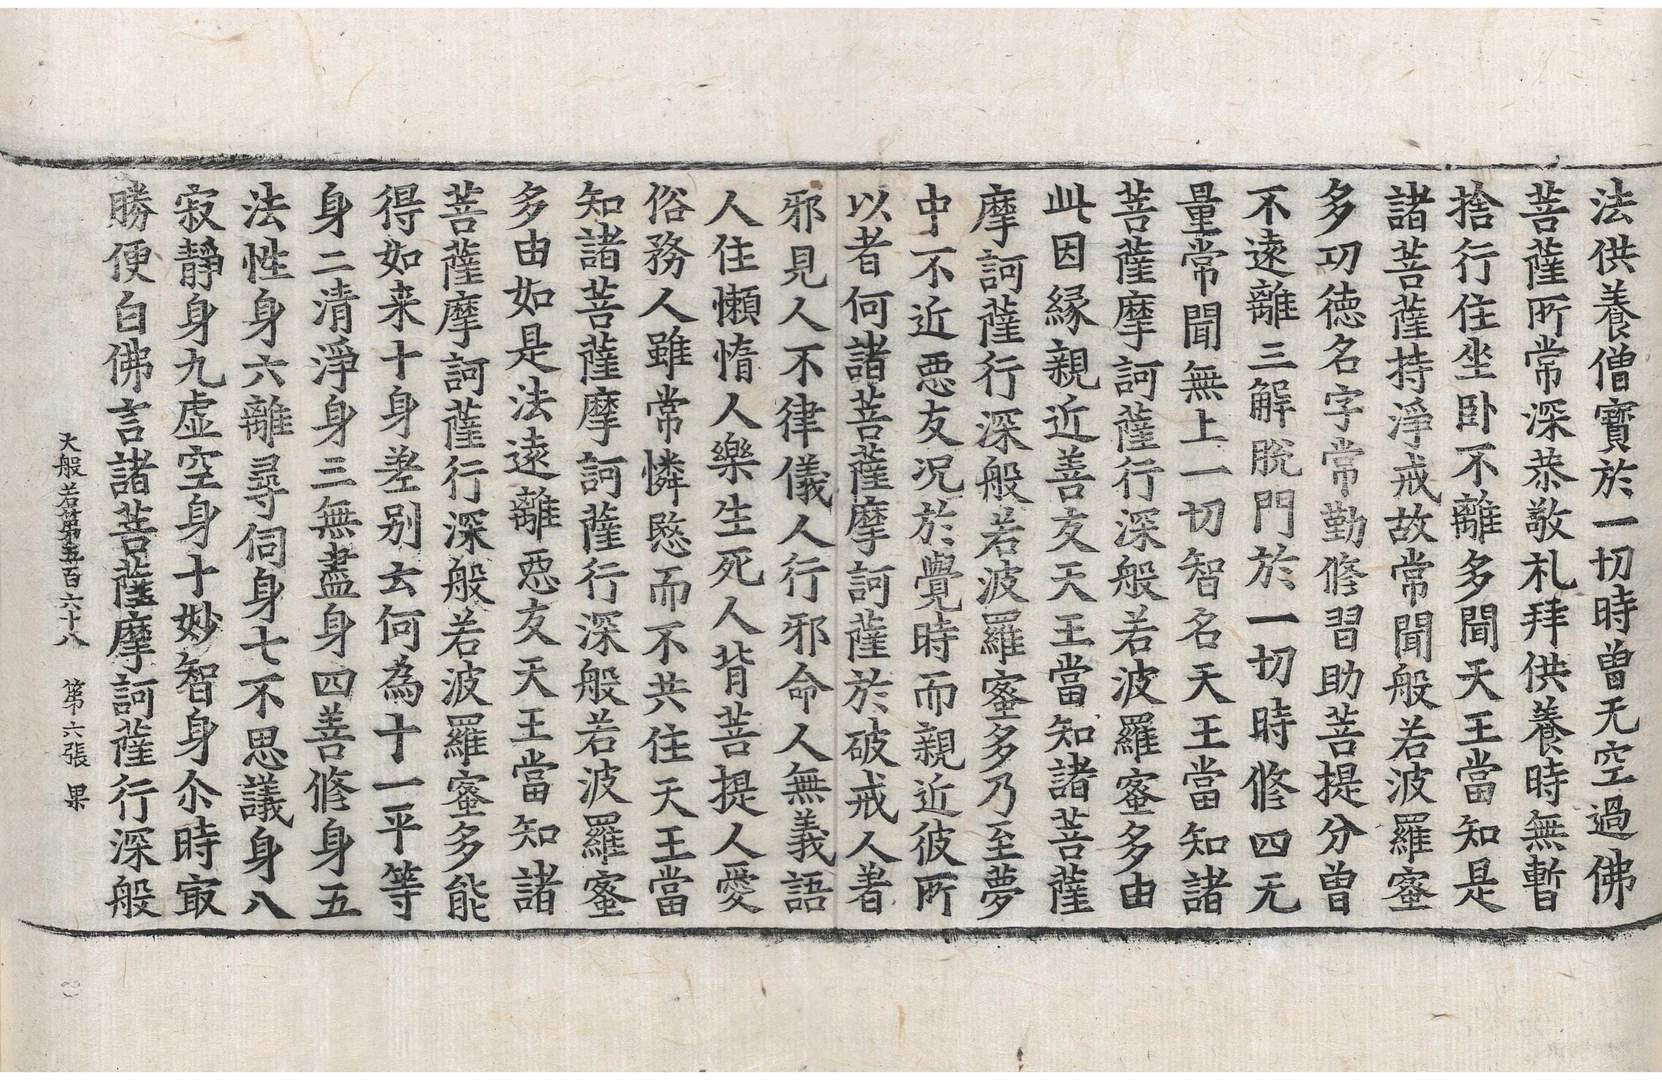 法供養僧寶於一切時曾无空過佛
菩薩所常深恭敬礼拜供養時無暫
捨行住坐卧不離多聞天王當知是
諸菩薩持淨戒故常聞般若波羅蜜
多功德名字常勤修習助菩提分曾
不遠離三解脫門於一切時修四无
量常聞無上一切智名天王當知諸
菩薩摩訶薩行深般若波羅蜜多由
此因緣親近善友天王當知諸菩薩
摩訶薩行深般若波羅蜜多乃至夢
中不近惡友況於覺時而親近彼所
以者何諸菩薩摩訶薩於破戒人著
邪見人不律儀人行邪命人無義語
人住懶惰人樂生死人背菩提人愛
俗務人雖常憐愍而不共住天王當
知諸菩薩摩訶薩行深般若波羅蜜
多由如是法遠離惡友天王當知諸
菩薩摩訶薩行深般若波羅蜜多能
得如来十身差别云何為十一平等
身二清淨身三無盡身四善修身五
法性身六離尋伺身七不思議身八
寂靜身九虛空身十妙智身尒時㝡
勝便白佛言諸菩薩摩訶薩行深般
大般若第五百六十八 第六張 果